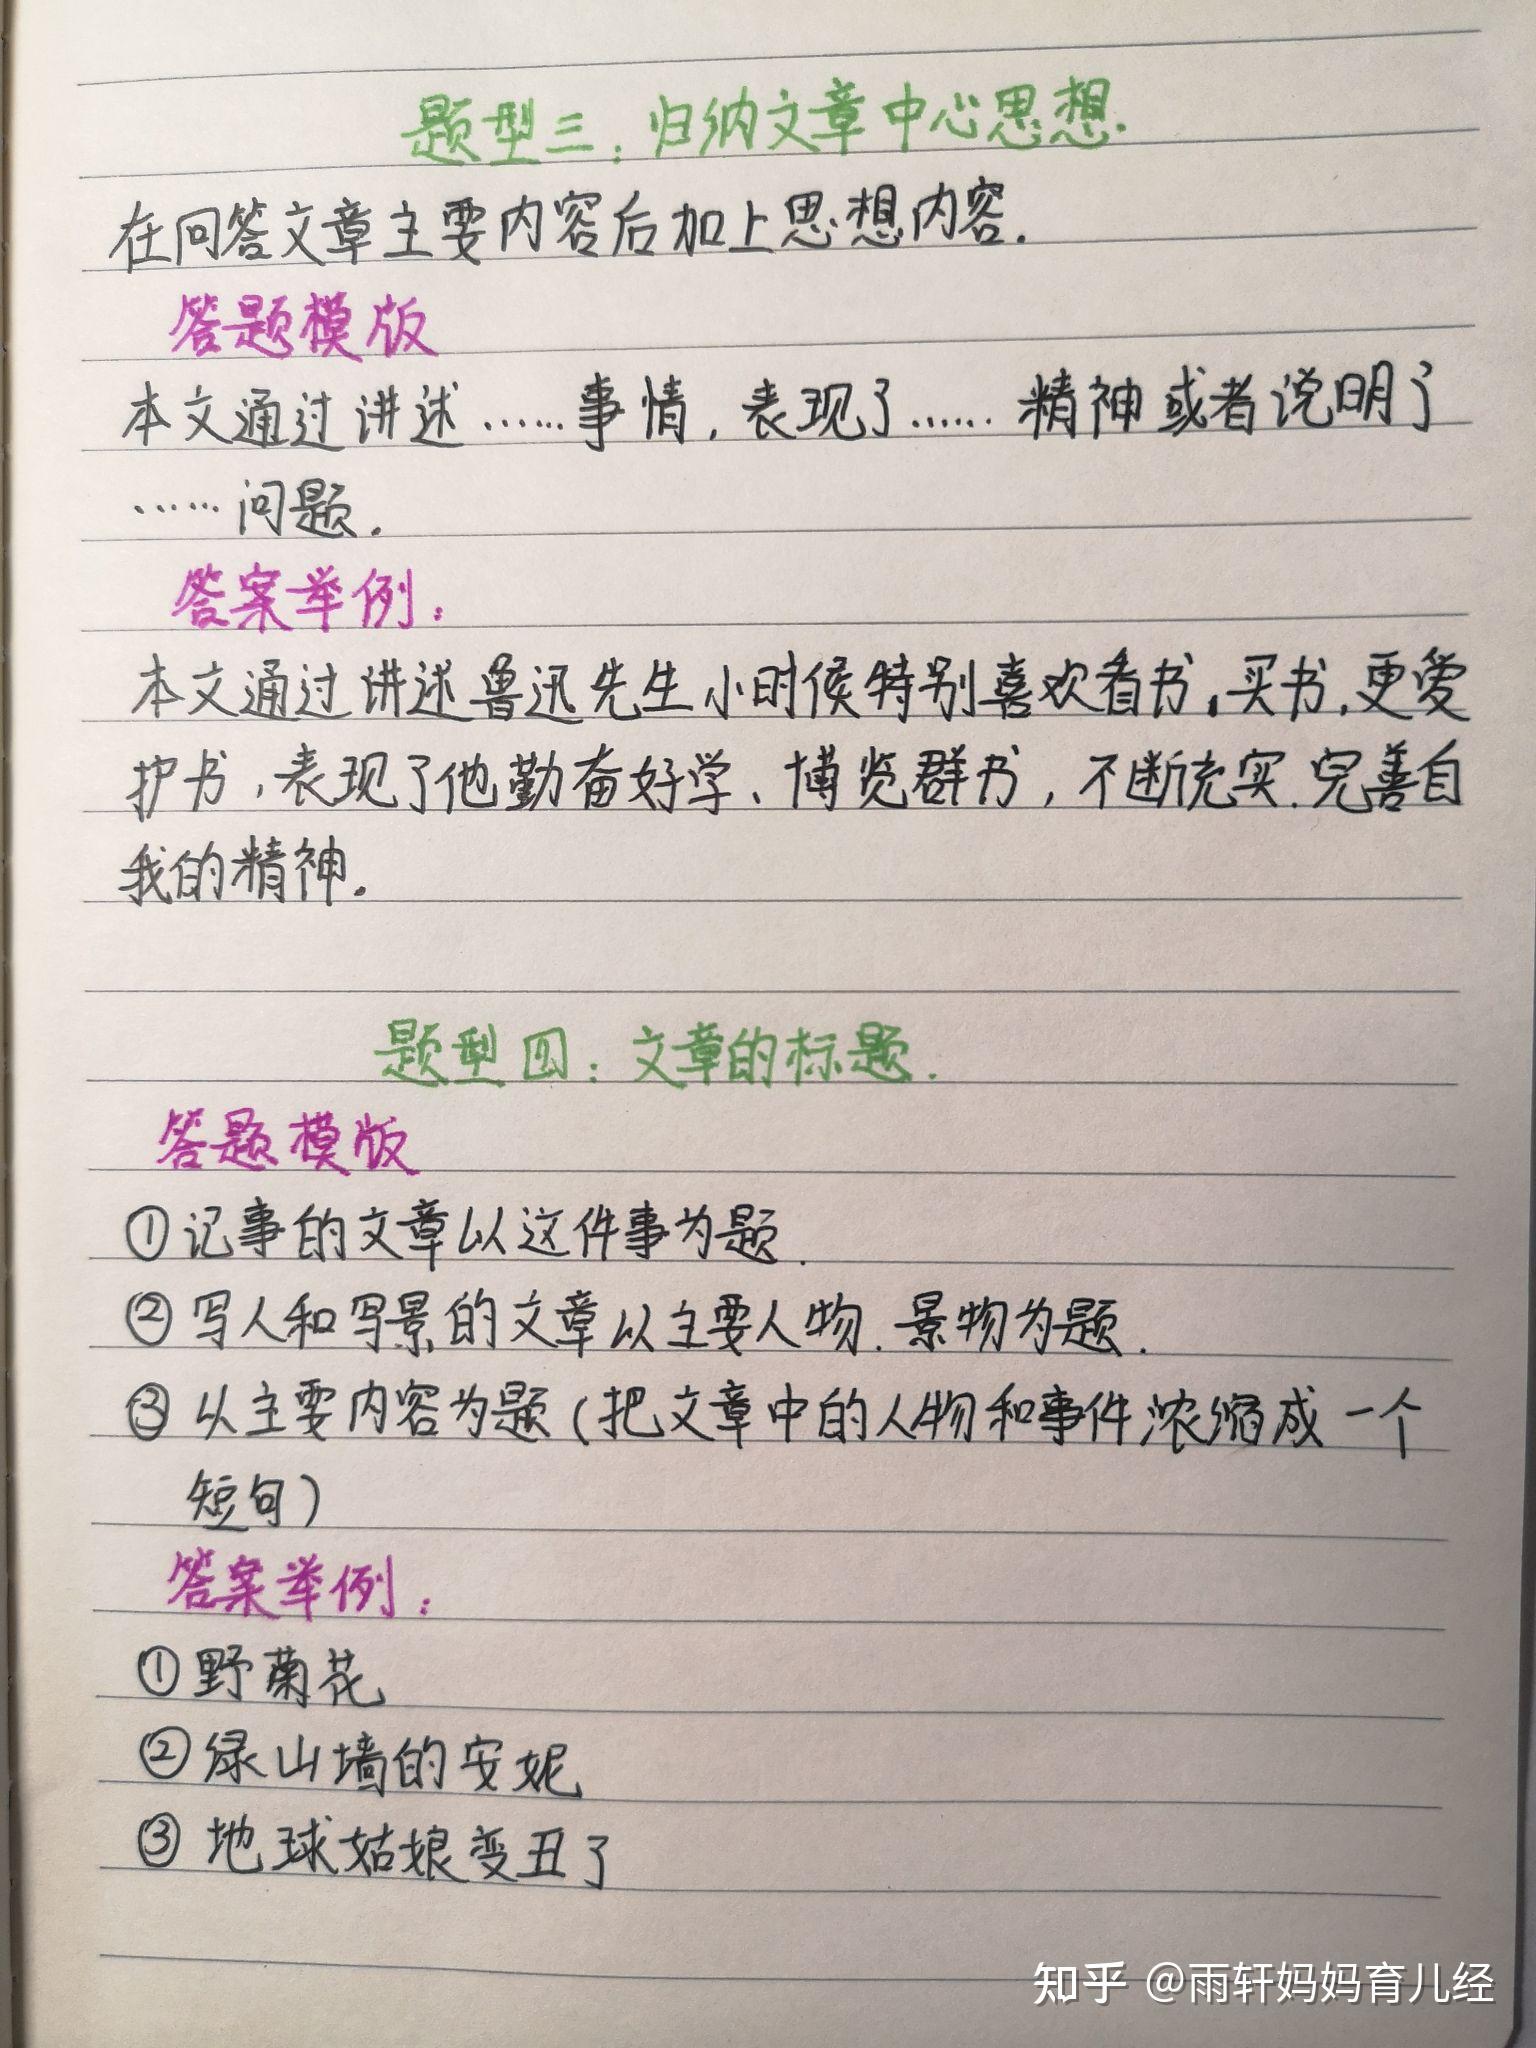 题型三：归纳文章中心思想.
在问答文章主要内容后加上思想内容.
答题模版
本文通过讲述……事情,表现了……精神或者说明了
……问题.
答案举例：
本文通过讲述鲁迅先生小时候特别喜欢看书、买书,更爱
护书,表现了他勤奋好学、博览群书,不断充实.完善自
我的精神.
题型四：文章的标题.
答题模版
①记事的文章以这件事为题.
②写人和写景的文章以主要人物.景物为题.
③以主要内容为题(把文章中的人物和事件浓缩成一个
短句)
答案举例：
①野菊花
②绿山墙的安妮
③地球姑娘变丑了
知乎 @雨轩妈妈育儿经